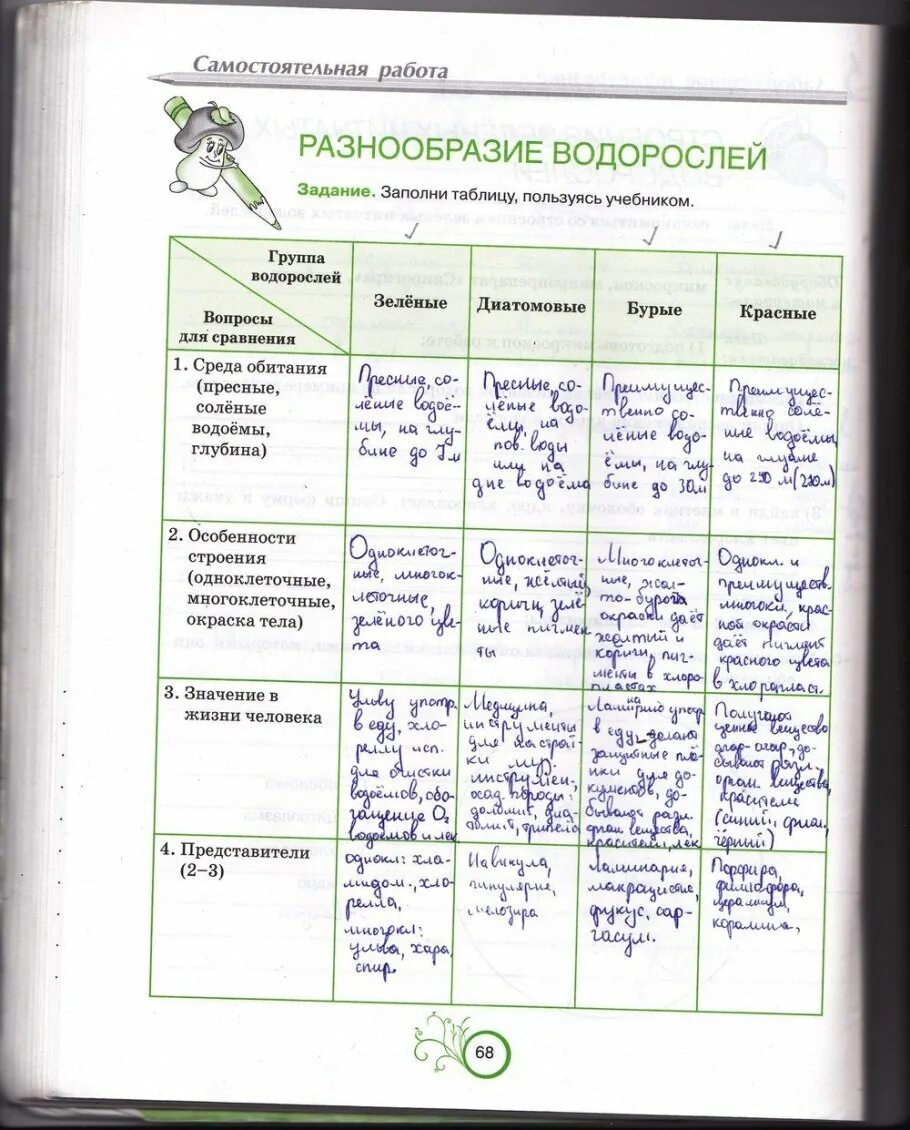 Самостоятельная работа
РАЗНООБРАЗИЕ ВОДОРОСЛЕЙ
Задание. Заполни таблицу, пользуясь учебником.
Группа
водорослей
Вопросы
для сравнения
Зелёные
Диатомовые
Бурые
Красные
1. Среда обитания
(пресные,
солёные
водоёмы,
глубина)
Пресные, со-
лёные водоё-
мы, на глу-
бине до 7м
Пресные, со-
лёные водо-
ёмы, на
пов. воды
или на
дне водоёма
Преимущес-
твенно со-
лёные водо-
ёмы, на глу-
бине до 30м
Преимущес-
твенно солё-
ные водоёмы
на глубине
до 250 м
2. Особенности
строения
(одноклеточные,
многоклеточные,
окраска тела)
Одноклеточ-
ные, многок-
леточные,
зелёного цве-
та
Одноклеточ-
ные, жёлтый,
коричн, зелё-
ные пигмен-
ты
Многоклеточ-
ные, жёл-
то-бурого
окраски даёт
жёлтый и
коричн, пиг-
менты в хлоро-
пластах
Однокл. и
преимуществ.
многокл, крас-
ной окраски
даёт пигмент
красного цвета
в хлоропласт.
3. Значение в
жизни человека
Ульву употр.
в еду, хло-
реллу исп.
для очистки
водоёмов, обо-
гащение O₂
водоёмов и лек
Медицина,
инструменты
для
инструмен,
осад. породы:
доломит, диа-
томит,
Ламинарию употр
в еду, делают
защитные плё-
нки для до-
кументов, до-
бывают разл.
вещества,
красители, лек
Получают
ценное вещество
агар-агар, до-
бывают разл.
орган. вещества,
красители
(синий,
чёрный)
4. Представители
(2–3)
однокл: хла-
мидом., хло-
релла,
многокл:
ульва, хара,
спир.
Навикула,
пинулярие,
мелозира
Ламинария,
макроцистис,
фукус, сар-
гасум.
Порфира,
филлофора,
кораллина,
68